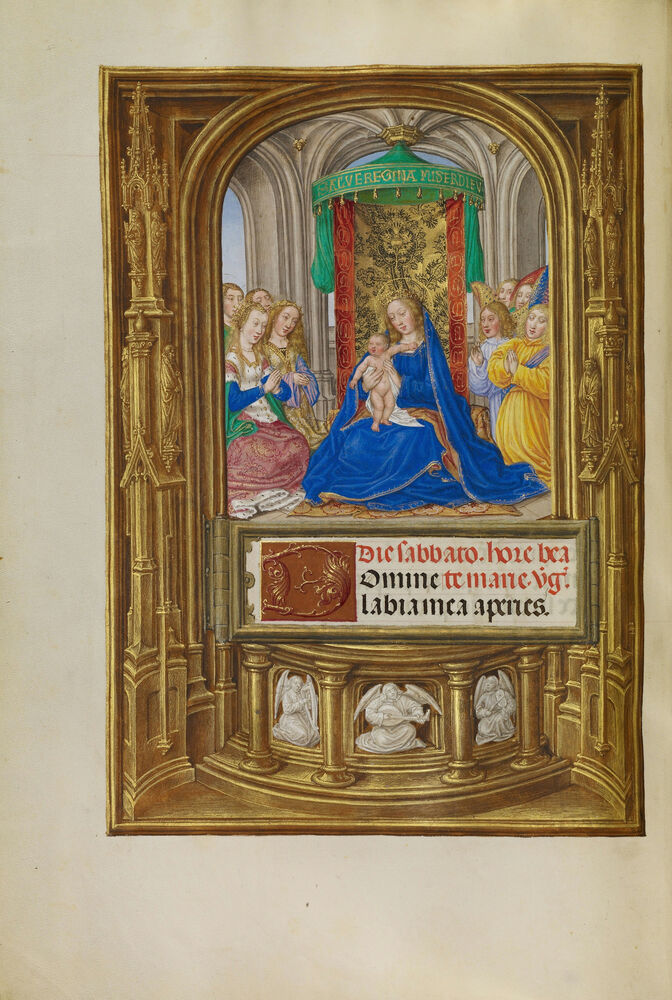 SALVE REGINA MISERDIEV
Die sabbato. hore bea
Domine te marie. v̄gⁱ.
labia mea aperies.